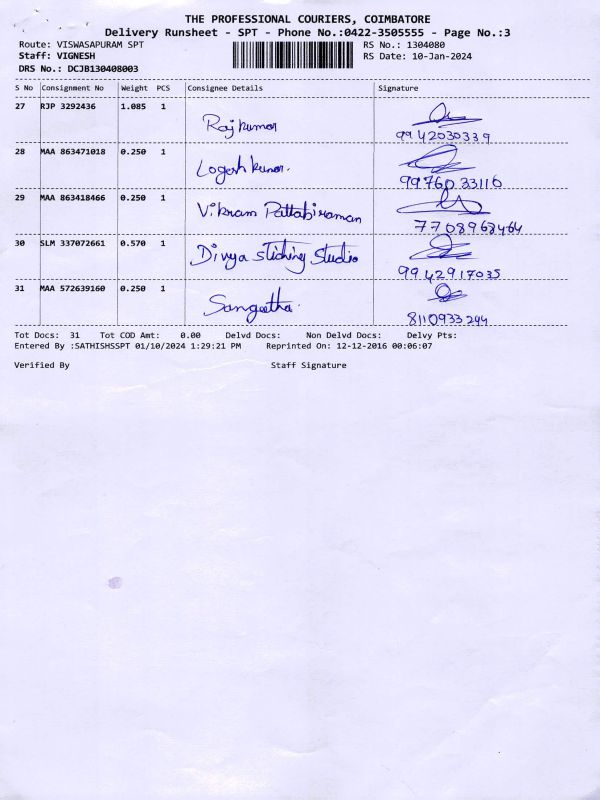 THE PROFESSIONAL COURIERS, COIMBATORE
Delivery Runsheet - SPT - Phone No.:0422-3505555 - Page No.:3
Route: VISWASAPURAM SPT RS No.: 1304080
Staff: VIGNESH RS Date: 10-Jan-2024
DRS No.: DCJB130408003
S No Consignment No Weight PCS Consignee Details Signature
27 RJP 3292436 1.085 1
Rajkumar 9942030339
28 MAA 863471018 0.250 1
Logesh kumar. 9976033110
29 MAA 863418466 0.250 1
Vikram Pattabiraman 7708963464
30 SLM 337072661 0.570 1
Divya stiching studio 9942917035
31 MAA 572639160 0.250 1
Sangeetha. 8110933294
Tot Docs: 31 Tot COD Amt: 0.00 Delvd Docs: Non Delvd Docs: Delvy Pts:
Entered By :SATHISHSSPT 01/10/2024 1:29:21 PM Reprinted On: 12-12-2016 00:06:07
Verified By Staff Signature